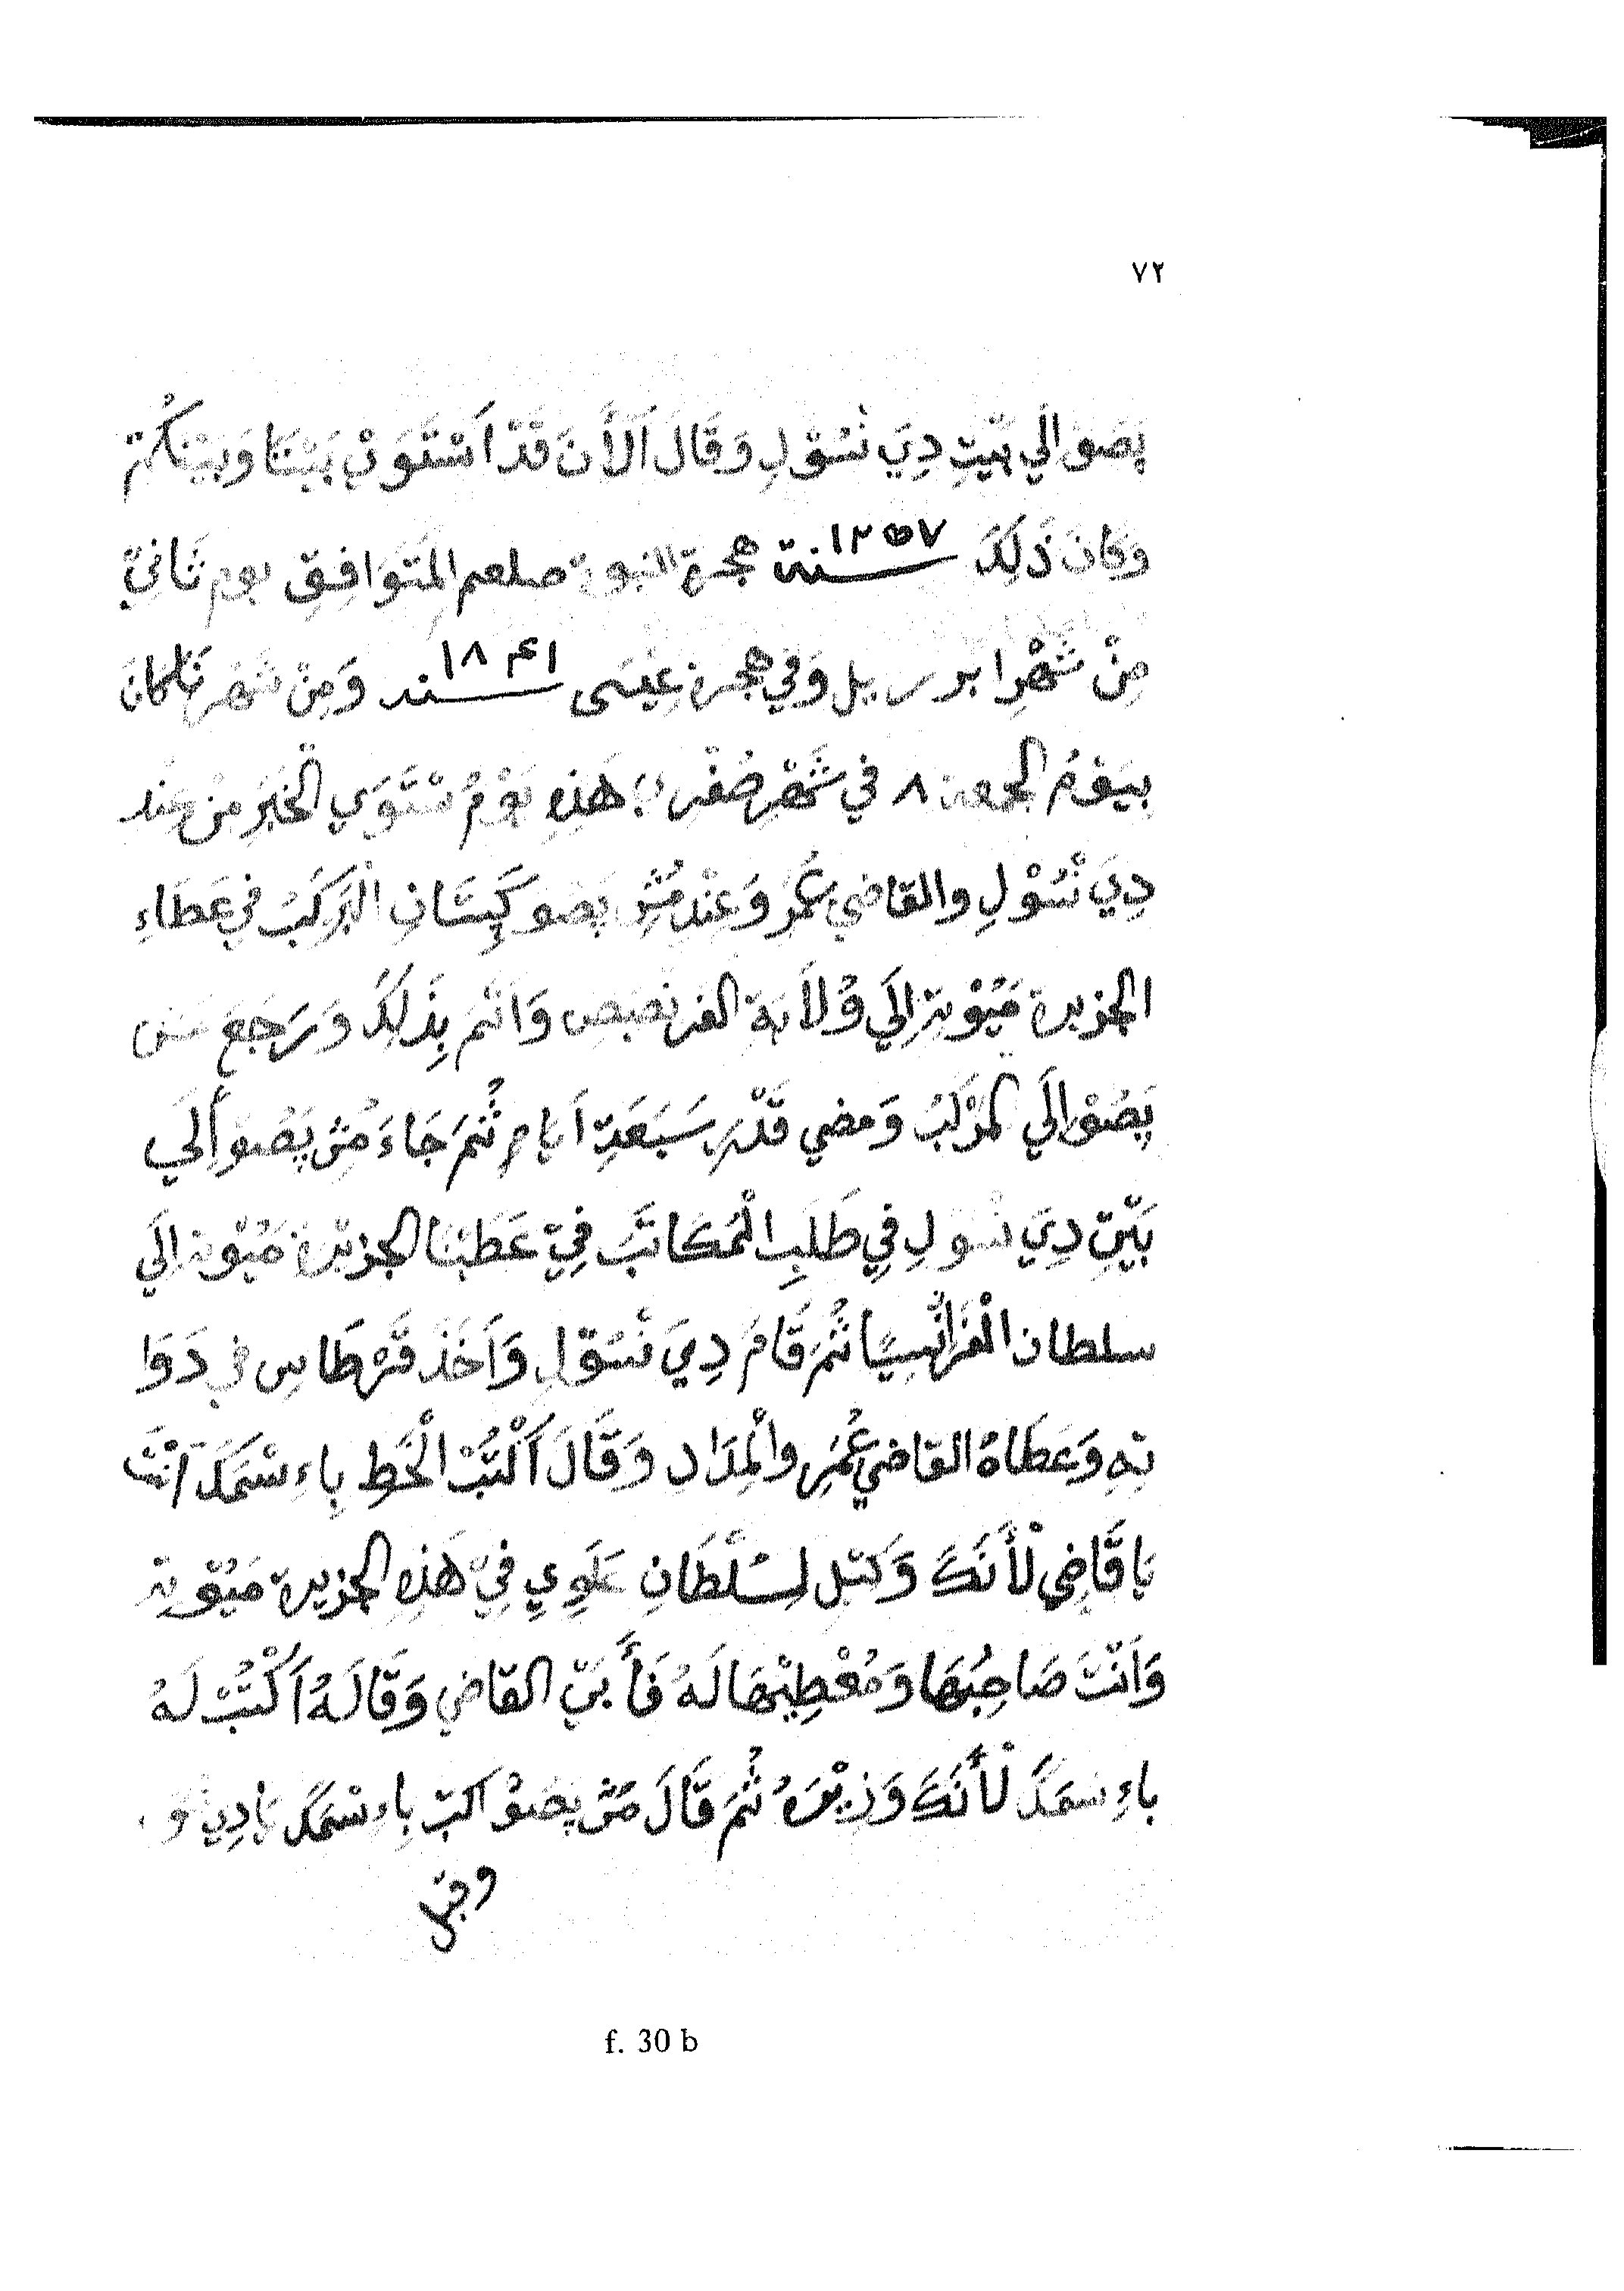 ٧٢
پَصَوْ الَي بَيْتِ دِيَ نْسُوْلِ وَقَالَ اَلْأَنَ قَدْ اَسْتَوَيْ بَيْنَنَا وَبَيْنَكُمْ
وَكَانَ ذَلِكَ سنة ١٢٥٧ هجرة النبوية صلعم المُتَوَافِقِ يوم ثَانِيْ
مِنْ شَهْرِ ابر ريل وَفي هجرة عِيْسَى سند ١٨٤١ وَمِنْ شَهْرِ
بيَوْمُ الجمعة ٨ في شَهْرِ صَفَر هَذِهِ يَوْمُ سْتَوَي الْخَبَرِ مِنْ عِند
دِيَ نْسُوْلِ والقاضي عُمَر وَعِنْدِ مُسْ پَصَو كَپِتَانِ الْمَرْكَبْ في عَطَاءِ
الجزيرة مَيُوْتة اِلَي وُلَايَة الفرنصيص وَاَتَمَ بِذَلِكَ وَرَجَعَ مس
پَصَوْ الَي المَرْكَبْ وَمضي قَدْرِ سَبَعَةِ اَيام ثُمَ جَاءَ مُسْ پَصَوْ اَلَي
بَيْتِ دِيَ نْسوْلِ فِي طَلَبِ الْمُكَاتَبَ فِيْ عَطَيْنَا الجزيْرة مَيُوْتة اِلَي
سلطان الْفَرَانْسِيَا ثُمَ قَامَ دِيَ نْسُوْلِ وَاَخَذَ قَرْطَاسِ في دَوَا
تِهِ وَعَطَاهُ القاضي عُمَر والْمِدَادِ وَقَالَ اَكْتُبْ الْخَطِ باءِسْمَكَ اَنْتَ
يا قَاضِي لْأَنَكَ وَكيل لِسُلْطَانِ عَلَوِي فِيْ هَذِهِ الجزيرة مَيُوْتة
وَاَنْتَ صَاحِبُهَا وَمُعْطِيْهَا لَهُ فَأَبَيْ القاضي وَقَالَهُ اَكْتُبْ لَهُ
باءِسْمَكَ لْأَنَكَ وَزِيْرَهُ ثُمَ قَالَ مُسْ پَصَوْ اكتب بِاءِسْمَكَ يَا دِيَ
f. 30 b